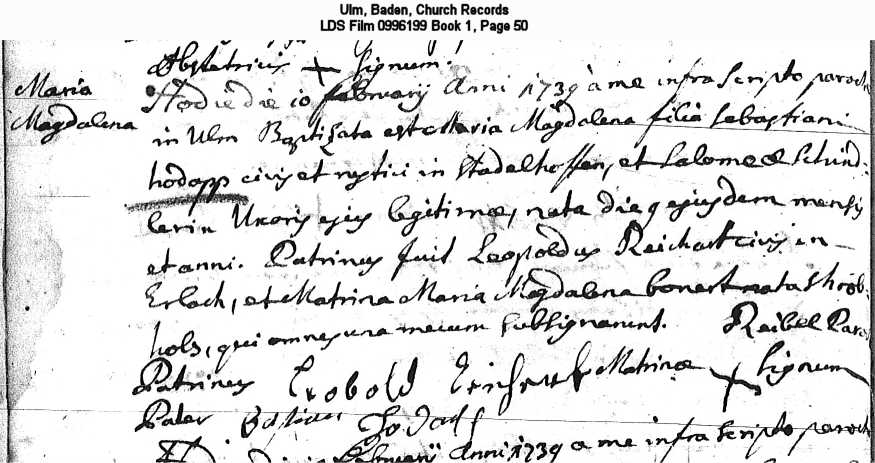 Ulm, Baden, Church Records
LDS Film 0996199 Book 1, Page 50
Obstetricis + Signum.
Maria Magdalena
Hodie die 10 february Anni 1739 à me infra Scripto paroch
in Ulm Baptizata est Maria Magdalena filia Sebastiani
hodapp civis et rustici in Stadelhoffen, et Salomeæ Schind-
lerin Uxoris ejus legitimæ, nata die 9 ejusdem mensis
et anni. Patrinus fuit Leopoldus Reichart civis in
Erlach, et Matrina Maria Magdalena bonert nata
hols, qui omnes una mecum subsignarunt. Reibel Paro
Patrinus Leobold Matrinæ + Signum
Pater
february Anni 1739 a me infra scripto paroch